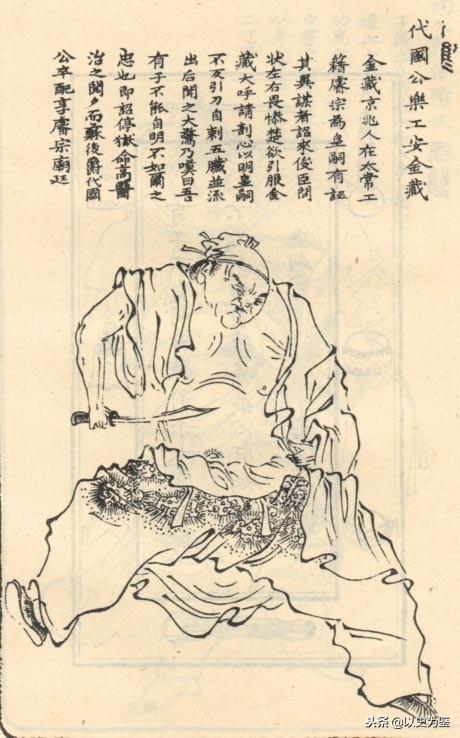 代國公樂工安金藏
金藏京兆人在太常工
籍睿宗為皇嗣有誣
其異謀者詔來俊臣問
狀左右畏慘楚欲引服金
藏大呼請剖心以明皇嗣
不反引刀自刺五臟並流
出后聞之大驚乃嘆曰吾
有子不能自明不如爾之
忠也即詔停獄命高醫
治之閱夕而蘇後爵代國
公卒配享睿宗廟廷
头条 @以史为鉴